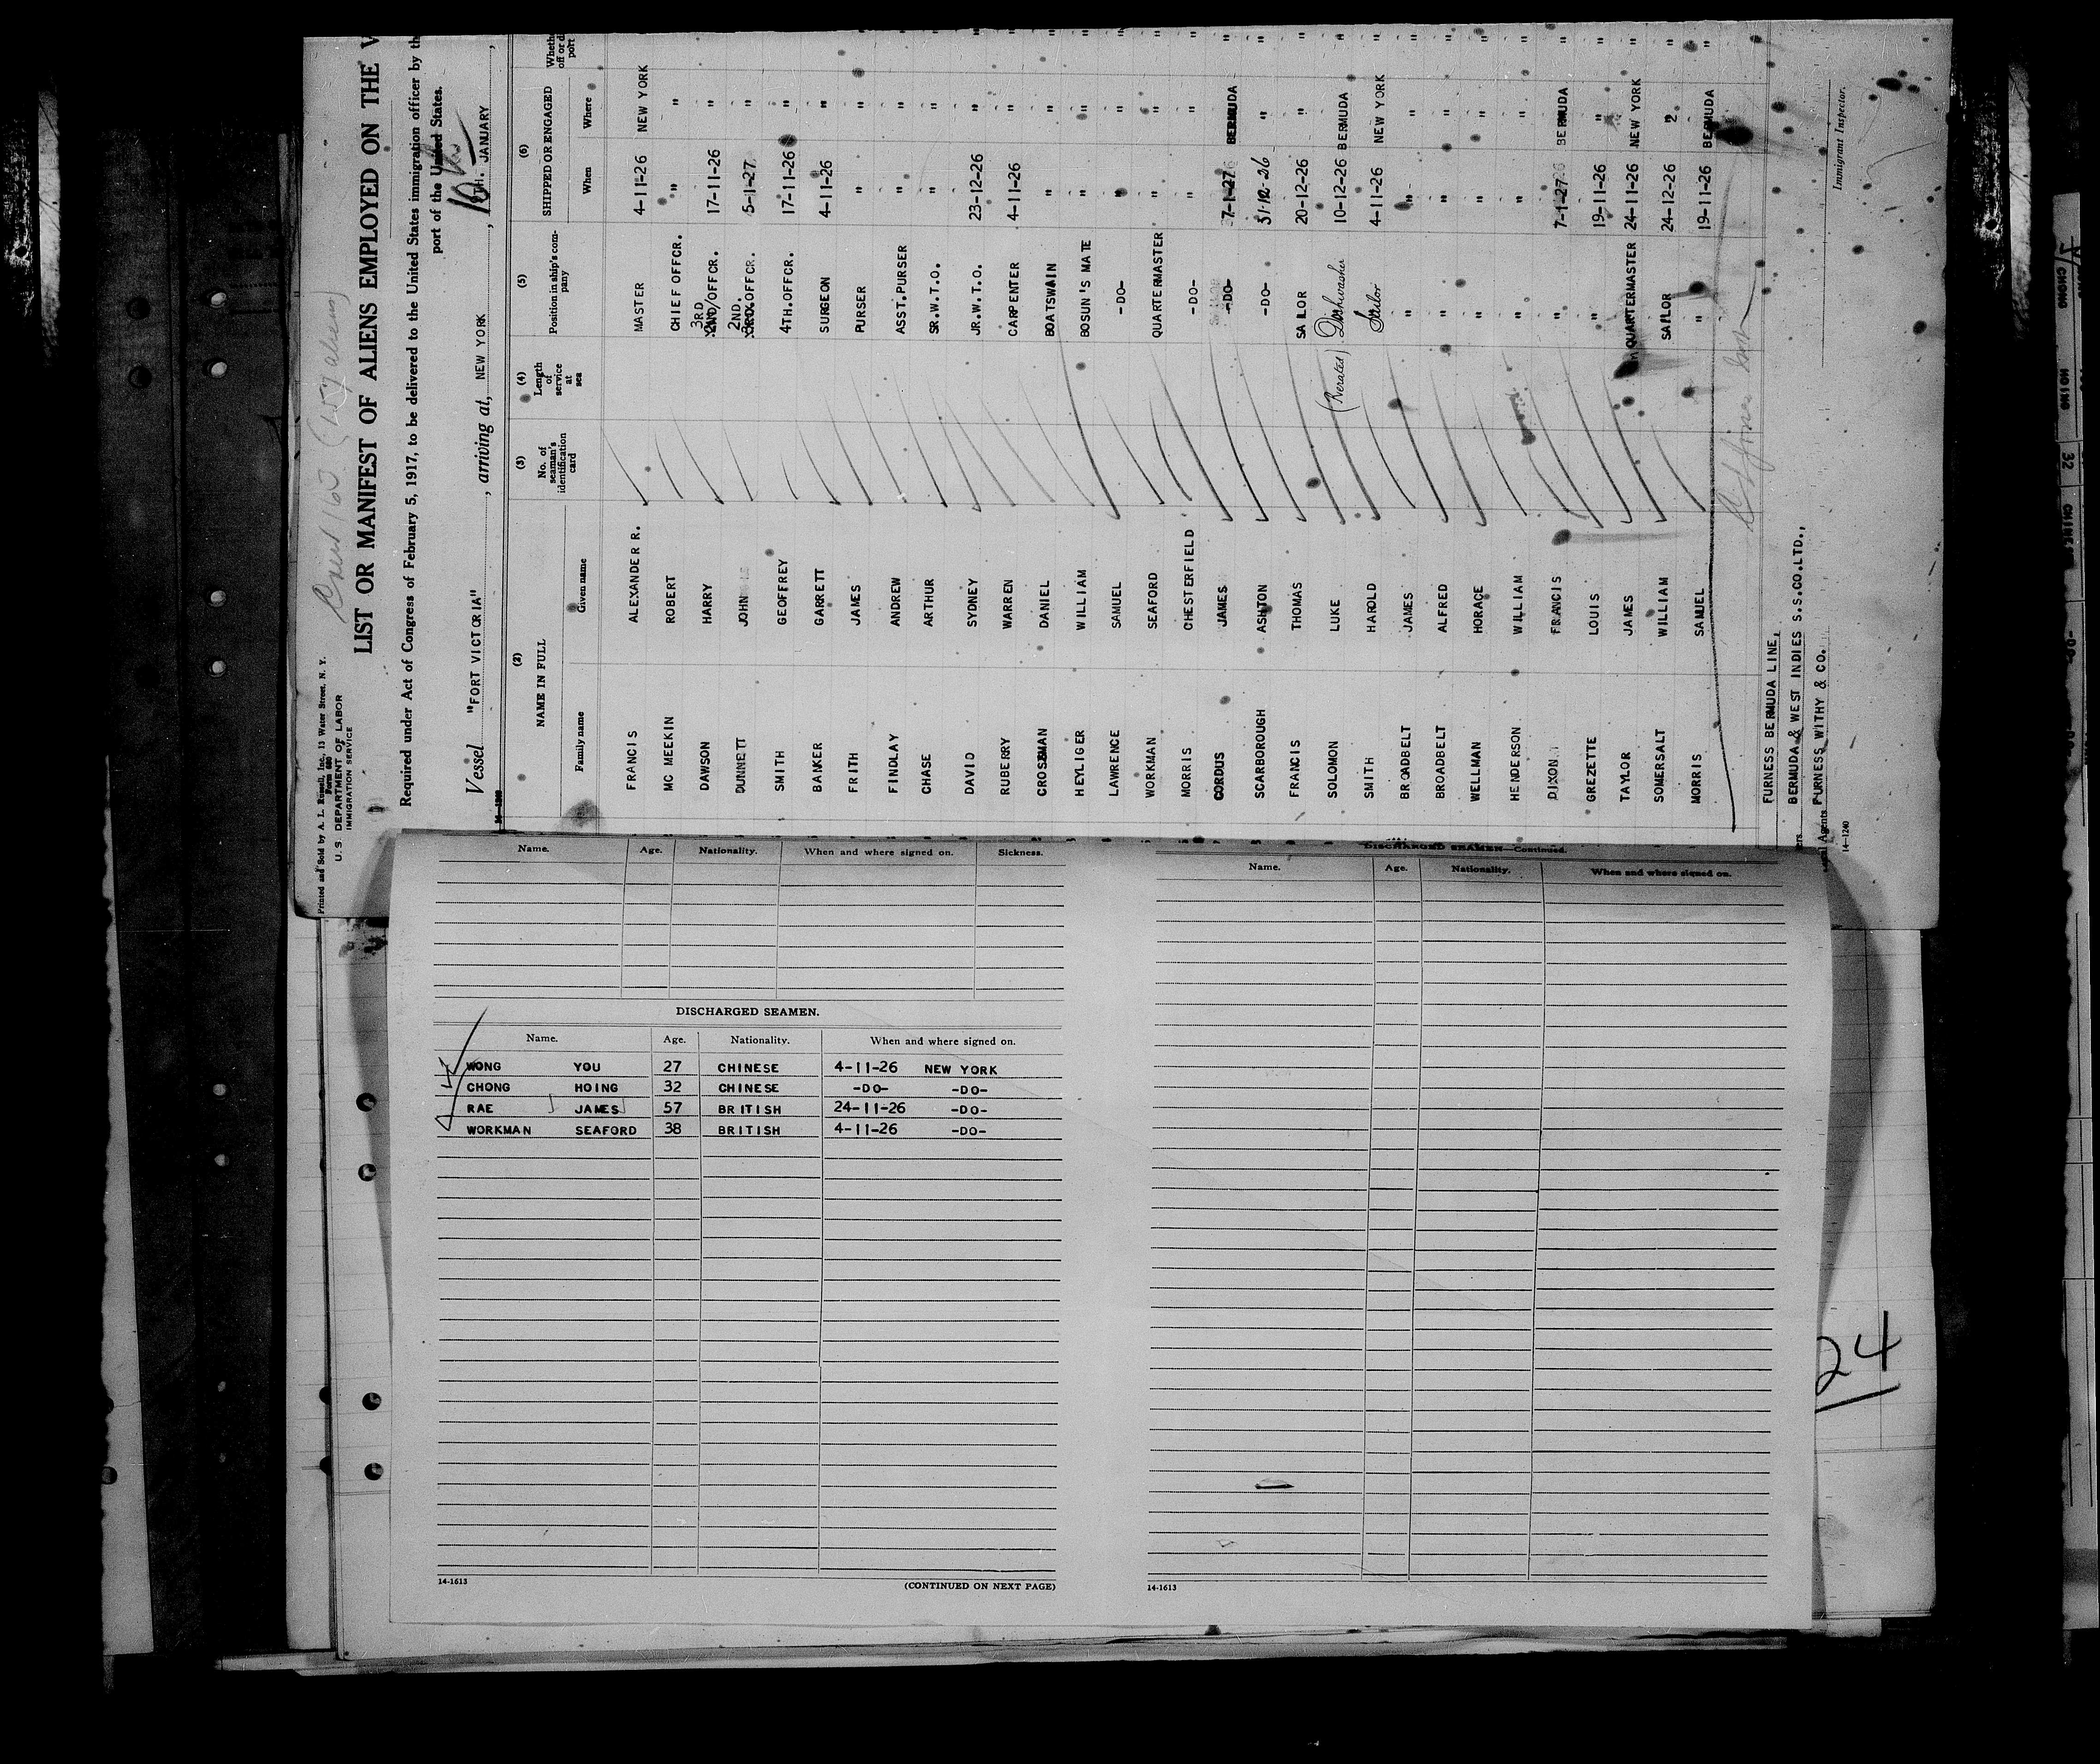 Printed and Sold by A. L. Russell, Inc., 13 Water Street, N. Y.
Form 680
U. S. DEPARTMENT OF LABOR
IMMIGRATION SERVICE
LIST OR MANIFEST OF ALIENS EMPLOYED ON THE V
Required under Act of Congress of February 5, 1917, to be delivered to the United States immigration officer by th
port of the United States.
Vessel "FORT VICTORIA", arriving at, NEW YORK, 10th JANUARY,
(2) (3) (4) (5) (6)
NAME IN FULL No. of seaman's identification card Length of service at sea Position in ship's company SHIPPED OR ENGAGED
Family name Given name When Where
FRANCIS ALEXANDER R. MASTER 4-11-26 NEW YORK "
MC MEEKIN ROBERT CHIEF OFFCR. " " "
DAWSON HARRY 3RD OFFCR. 17-11-26 " "
DUNNETT JOHN 2ND. OFFCR. 5-1-27 " "
SMITH GEOFFREY 4TH.OFFCR. 17-11-26 " "
BAKER GARRETT SURGEON 4-11-26 " "
FRITH JAMES PURSER " " "
FINDLAY ANDREW ASST.PURSER " " "
CHASE ARTHUR SR.W.T.O. " " "
DAVID SYDNEY JR.W.T.O. 23-12-26 " "
RUBERRY WARREN CARPENTER 4-11-26 " "
CROSSMAN DANIEL BOATSWAIN " " "
HEYLIGER WILLIAM BOSUN'S MATE " " "
LAWRENCE SAMUEL -DO- " " "
WORKMAN SEAFORD QUARTERMASTER " " "
MORRIS CHESTERFIELD -DO- " " "
CORDUS JAMES -DO- 7-1-27 BERMUDA "
SCARBOROUGH ASHTON -DO- 31-12-26 " "
FRANCIS THOMAS SAILOR 20-12-26 " "
SOLOMON LUKE (Rerated) Dishwasher 10-12-26 BERMUDA "
SMITH HAROLD Sailor 4-11-26 NEW YORK "
BROADBELT JAMES " " " "
BROADBELT ALFRED " " " "
WELLMAN HORACE " " " "
HENDERSON WILLIAM " " " "
DIXON FRANCIS " 7-1-27 BERMUDA "
GREZETTE LOUIS " 19-11-26 " "
TAYLOR JAMES QUARTERMASTER 24-11-26 NEW YORK "
SOMERSALT WILLIAM SAILOR 24-12-26 " "
MORRIS SAMUEL " 19-11-26 BERMUDA "
FURNESS BERMUDA LINE,
BERMUDA & WEST INDIES S.S.CO.LTD.,
FURNESS WITHY & CO.
Agents
Immigrant Inspector.
14-1240
Name. Age. Nationality. When and where signed on. Sickness.
DISCHARGED SEAMEN.
Name. Age. Nationality. When and where signed on.
WONG YOU 27 CHINESE 4-11-26 NEW YORK
CHONG HOING 32 CHINESE -DO- -DO-
RAE JAMES 57 BRITISH 24-11-26 -DO-
WORKMAN SEAFORD 38 BRITISH 4-11-26 -DO-
14-1613
(CONTINUED ON NEXT PAGE)
DISCHARGED SEAMEN—Continued.
Name. Age. Nationality. When and where signed on.
14-1613
24